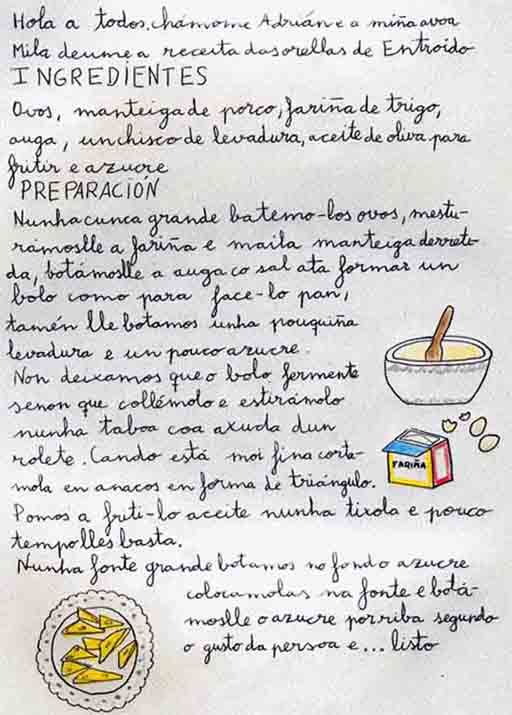 Hola a todos, chámome Adrián e a miña avoa
Mila deume a receita das orellas de Entroido
INGREDIENTES
Ovos, manteiga de porco, fariña de trigo,
auga, un chisco de levadura, aceite de oliva para
fritir e azucre
PREPARACIÓN
Nunha cunca grande batemo-los ovos, mestu-
rámoslle a fariña e maila manteiga derreti-
da, botámoslle a auga co sal ata formar un
bolo como para face-lo pan,
tamén lle botamos unha pouquiña
levadura e un pouco azucre.
Non deixamos que o bolo fermente
senon que collémolo e estirámolo
nunha taboa coa axuda dun
rolete. Cando está moi fina corta-
mola en anacos en forma de triángulo.
FARIÑA
Pomos a friti-lo aceite nunha tixola e pouco
tempo lles basta.
Nunha fonte grande botamos no fondo azucre
colocamolas na fonte e botá-
moslle o azucre por riba segundo
o gusto da persoa e... listo